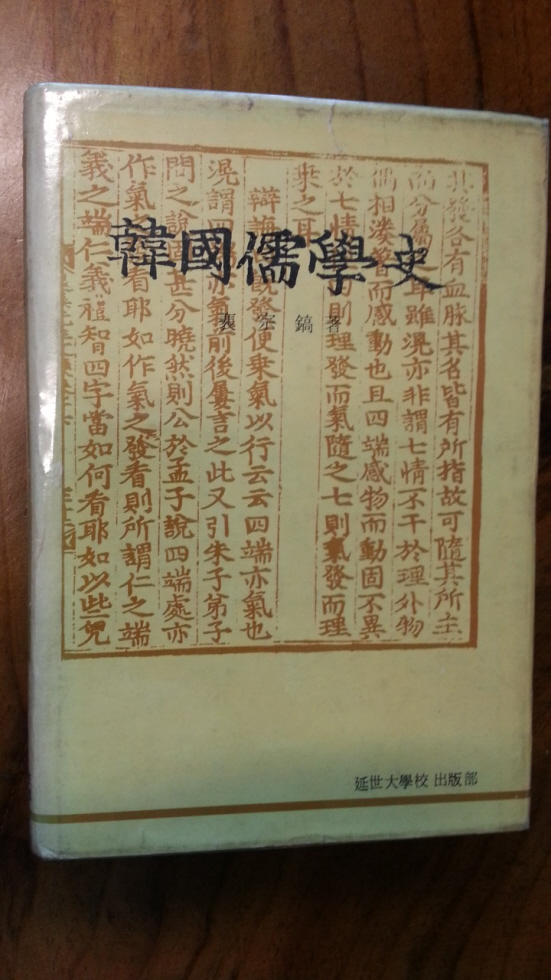 韓國儒學史
裵宗鎬 著
其發各有血脉其名皆有所指故可隨其所主
而分屬之耳雖滉亦非謂七情不干於理外物
偶相湊著而感動也且四端感物而動固不異
於七情 則理發而氣隨之七則氣發而理
乘之耳
辯誨 既發便乘氣以行云云四端亦氣也
滉謂四 亦氣前後屢言之此又引朱子弟子
問之說 甚分曉然則公於孟子說四端處亦
作氣 看耶如作氣之發看則所謂仁之端
義之端仁義禮智四字當如何看耶如以些兒
延世大學校 出版部